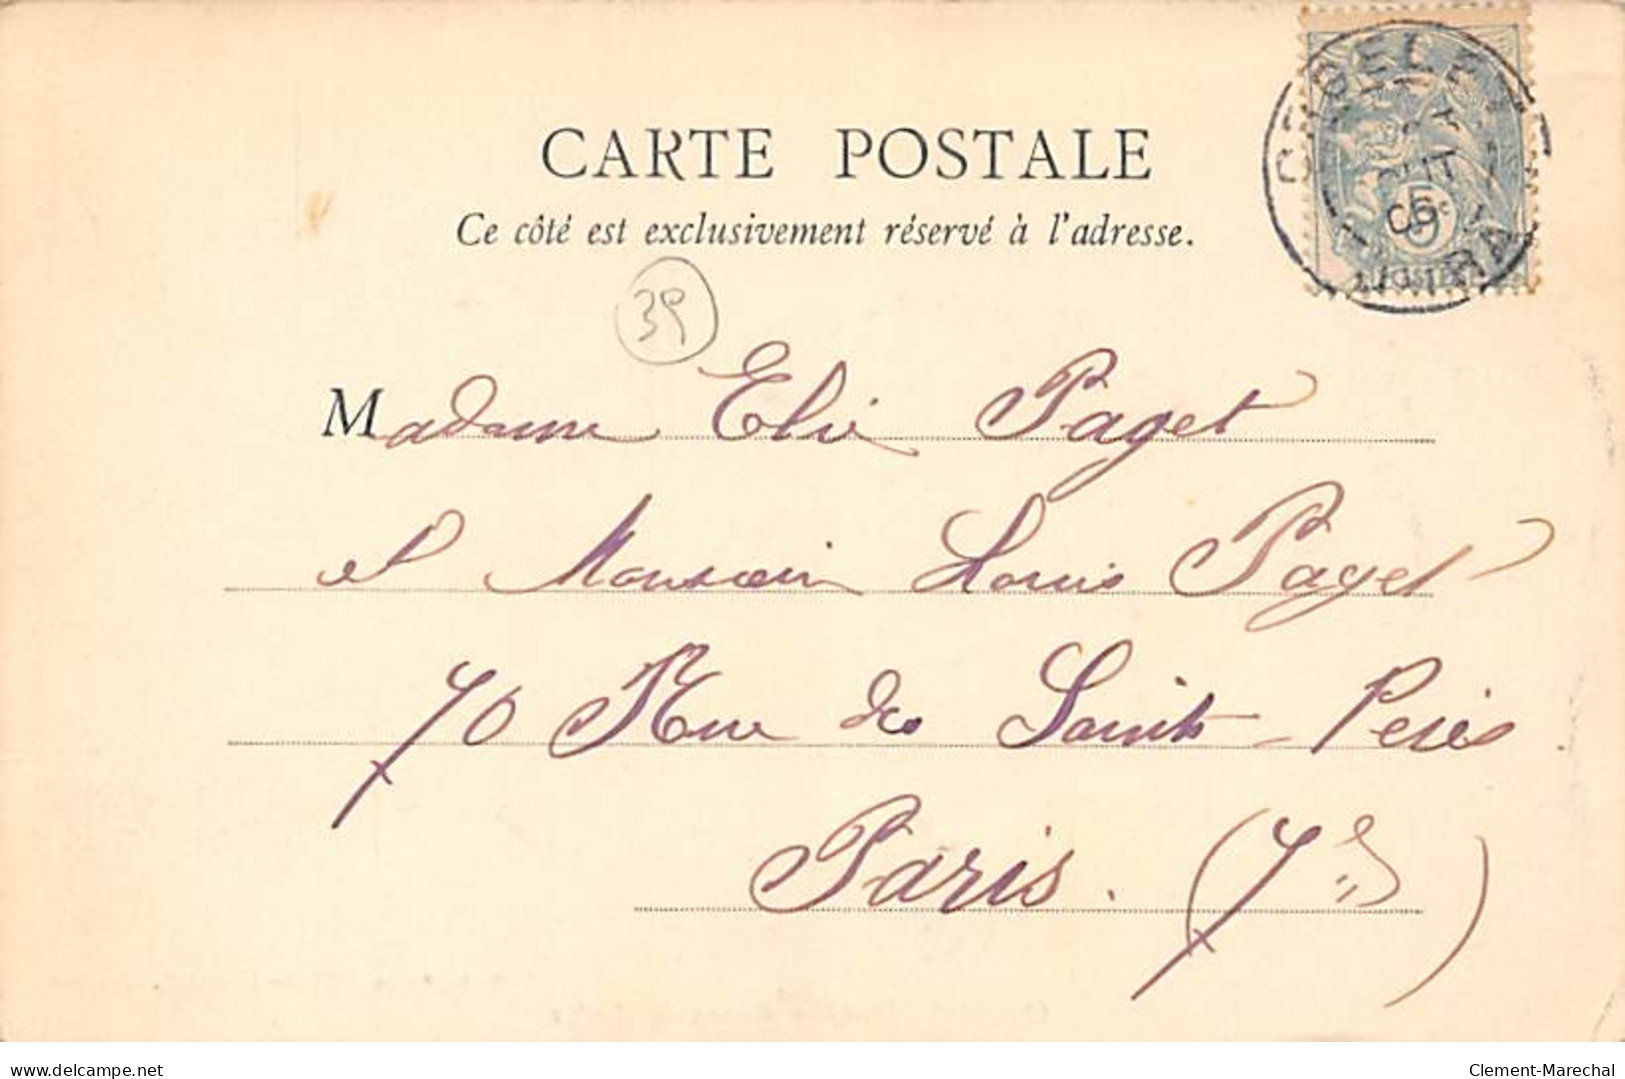 CARTE POSTALE
Ce côté est exclusivement réservé à l'adresse.
39
Madame Elie Paget
et Monsieur Louis Paget
70 Rue des Saints-Pères
Paris. (7e)
JURA
5
delcampe.net
Clement-Marechal